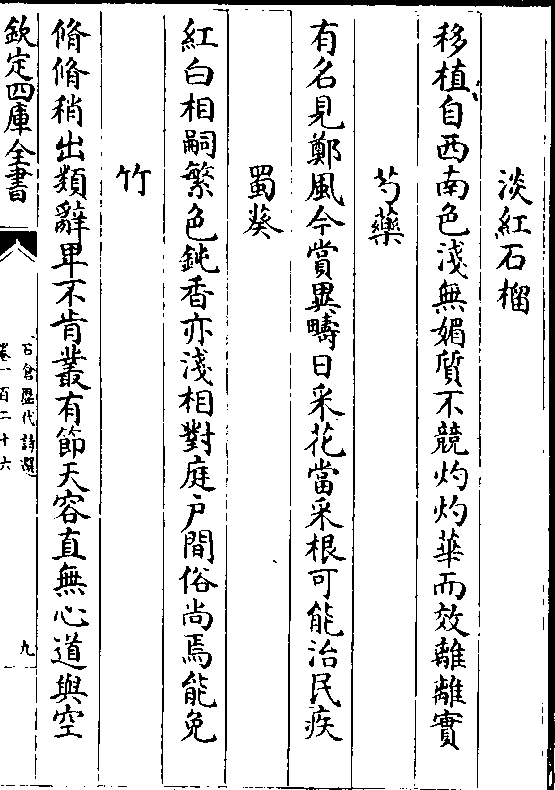 淡紅石榴
移植自西南色淺無媚質不競灼灼華而效離離實
芍藥
有名見鄭風今賞異疇日采花當采根可能治民疾
蜀葵
紅白相嗣繁色鈍香亦淺相對庭户間俗尚焉能免
竹
脩脩稍出類辭卑不肯叢有節天容直無心道與空
欽定四庫全書
石倉歷代詩選
卷一百二十六
九